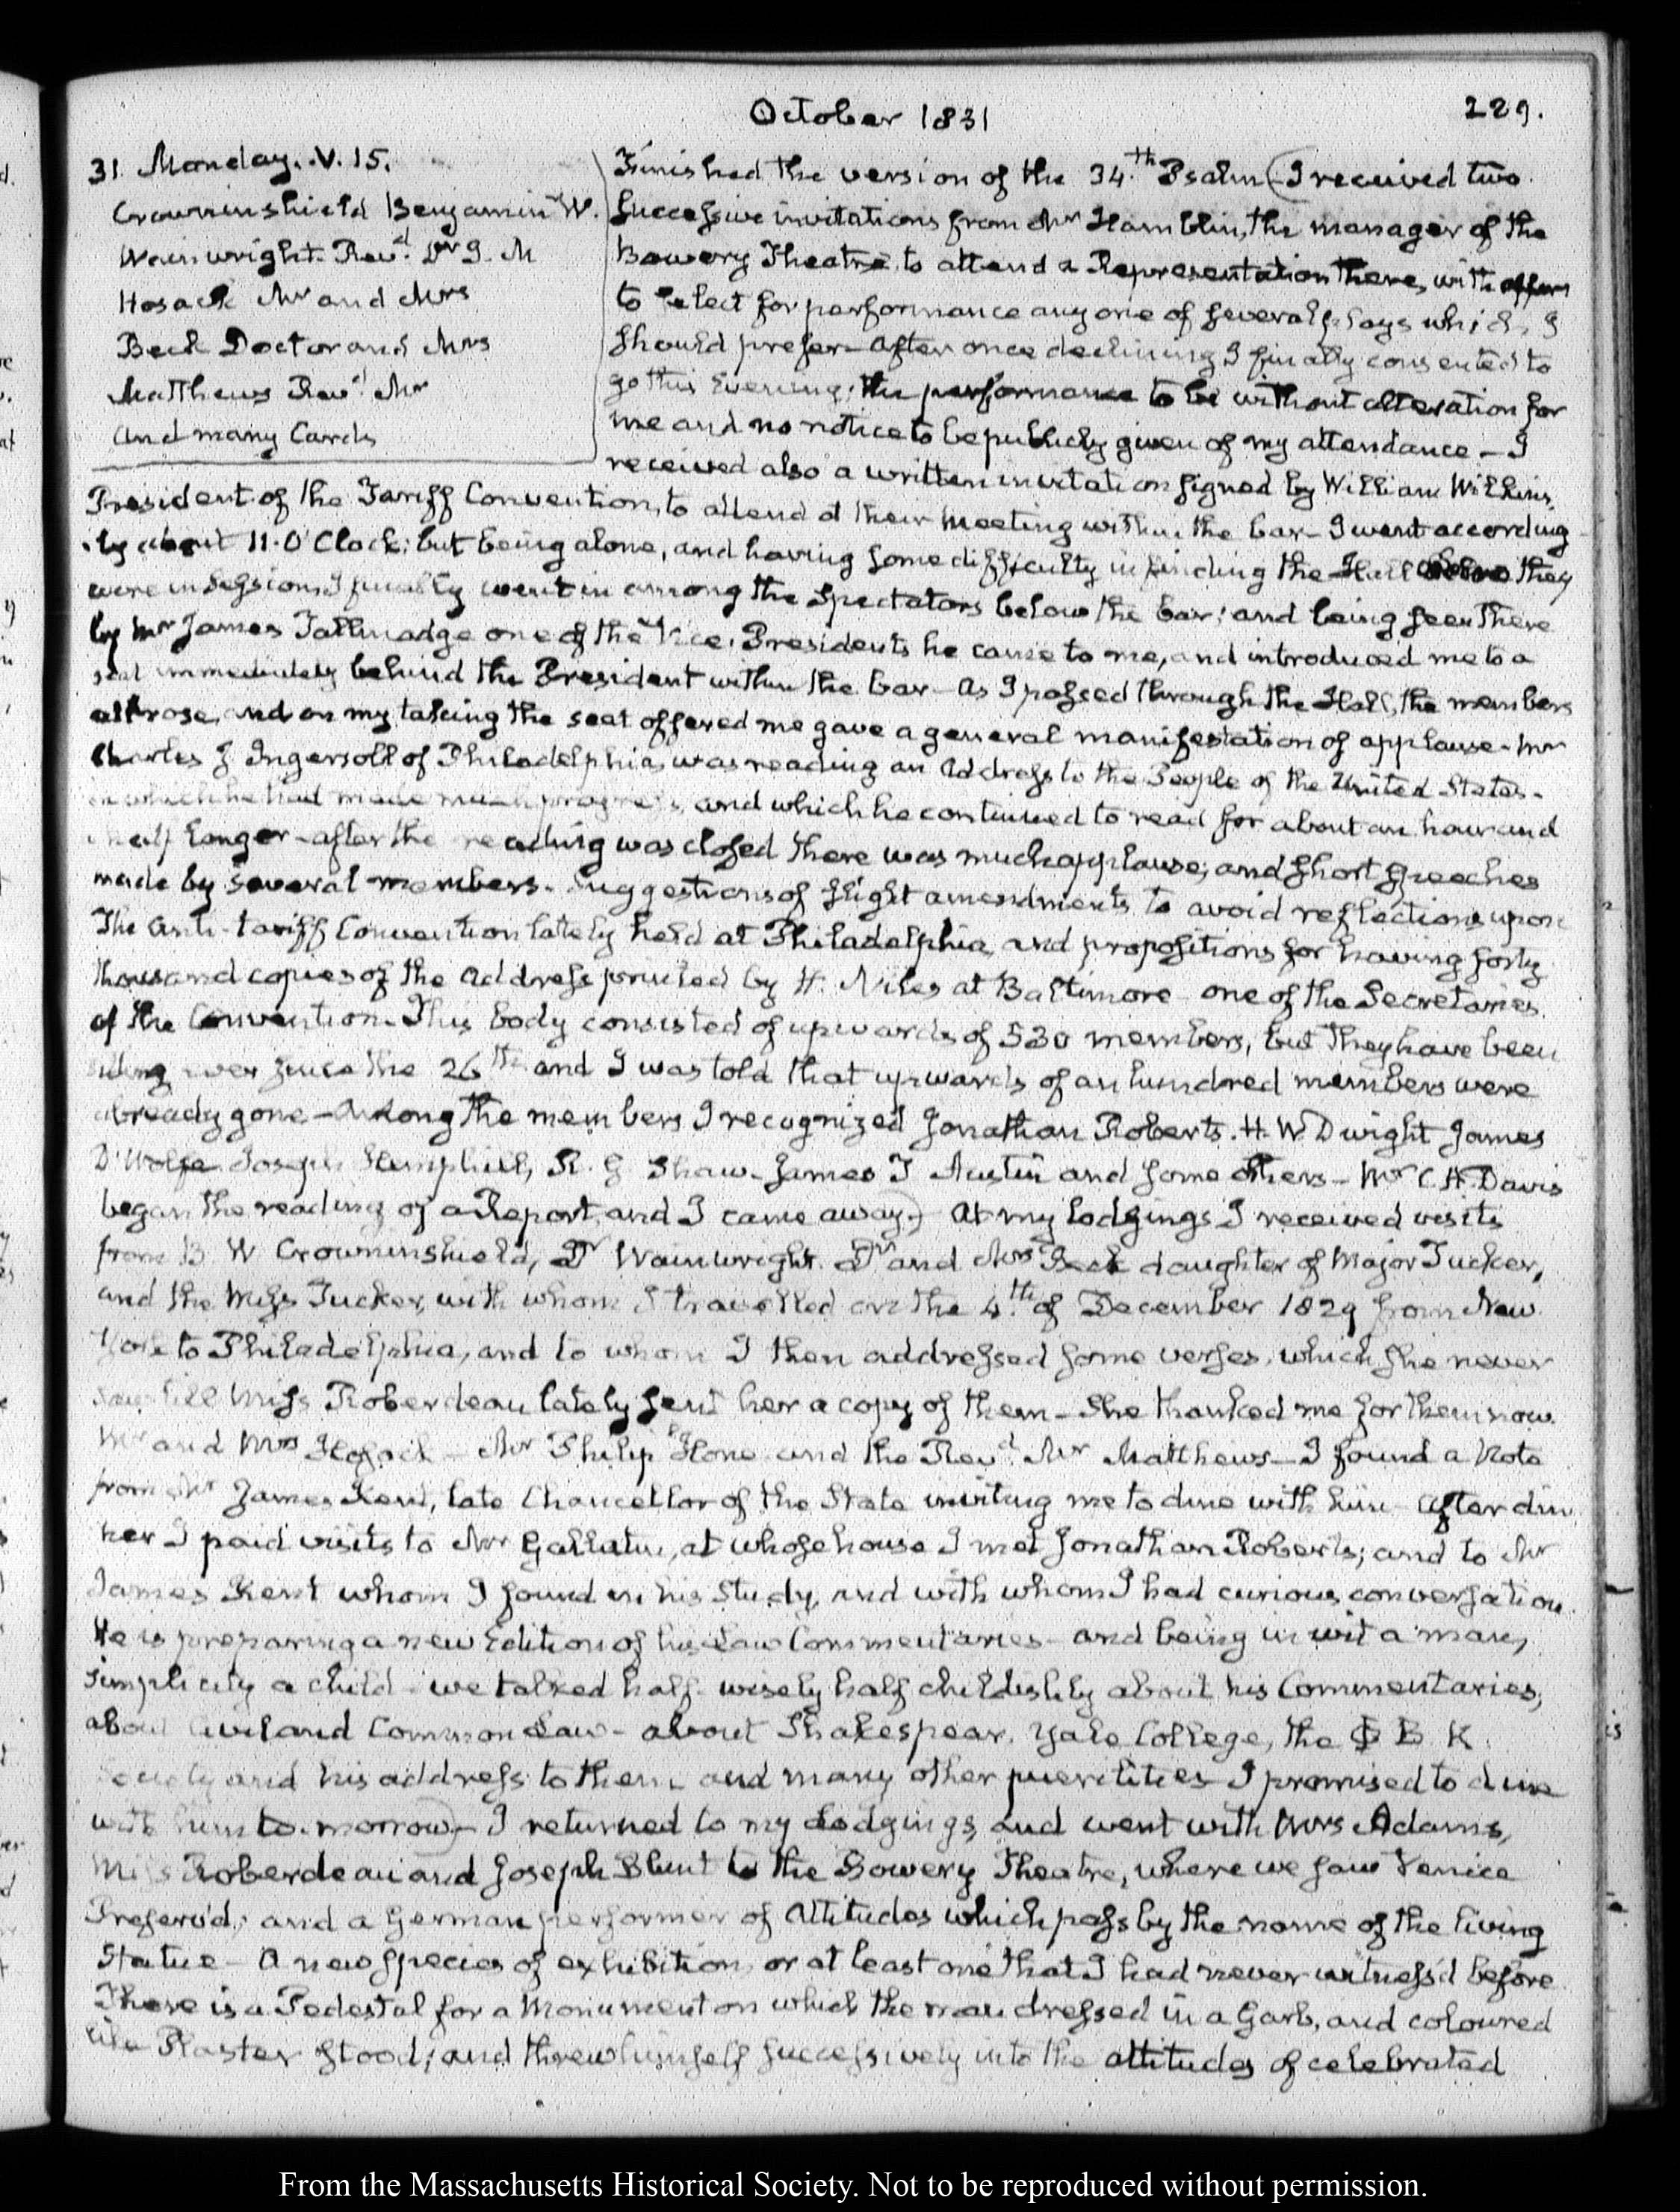 October 1831
229.
31. Monday. V. 15.
Crowninshield Benjamin W.
Wainwright. Revd. Dr J. M
Hosack Mr and Mrs
Beck Doctor and Mrs
Matthews Revd. Mr
And many Cards
Finished the version of the 34.th Psalm (I received two
successive invitations from Mr Hamblin, the manager of the
Bowery Theatre, to attend a Representation there, with offers
to select for performance any one of several plays which I
should prefer. After once declining I finally consented to
go this Evening; the performance to be without alteration for
me and no notice to be publicly given of my attendance — I
received also a written invitation signed by William Wilkins,
President of the Tariff Convention, to attend at their meeting within the bar — I went according-
ly about 11. O'Clock; but being alone, and having some difficulty in finding the Hall where they
were in Session, I finally went in among the Spectators below the bar; and being seen there
by Mr James Tallmadge one of the Vice-Presidents he came to me, and introduced me to a
seat immediately behind the President within the bar — As I passed through the Hall, the members
all rose, and on my taking the seat offered me gave a general manifestation of applause. Mr
Charles J. Ingersoll of Philadelphia, was reading an Address to the People of the United States -
in which he had made much progress, and which he continued to read for about an hour and
a half longer - after the reading was closed there was much applause; and short speeches
made by several members. Suggestions of slight amendments, to avoid reflections upon
The Anti-tariff Convention lately held at Philadelphia, and propositions for having forty
thousand copies of the Address printed by H. Niles at Baltimore one of the Secretaries
of the Convention. This body consisted of upwards of 530 members, but they have been
sitting ever since the 26th and I was told that upwards of an hundred members were
already gone — Among the members I recognized Jonathan Roberts. H. W. Dwight James
D'Wolfe Joseph Hemphill, R. G Shaw. James T Austin and some others — Mr C. A. Davis
began the reading of a Report, and I came away.) At my lodgings I received visits
from B W Crowninshield, Dr Wainwright. Dr and Mrs Beck daughter of Major Tucker,
and the Miss Tucker, with whom I travelled on the 4.th of December 1829 from New
York to Philadelphia, and to whom I then addressed some verses, which she never
saw till Miss Roberdeau lately sent her a copy of them — She thanked me for them now.
Mr and Mrs Hosack — Mr Philip Hone and the Revd. Mr Matthews — I found a Note
from Mr James Kent, late Chancellor of the State inviting me to dine with him — After din
ner I paid visits to Mr Gallatin, at whose house I met Jonathan Roberts; and to Mr
James Kent whom I found in his Study, and with whom I had curious conversation.
He is preparing a new Edition of his Law Commentaries — and being in wit a man,
simplicity a child — we talked half wisely half childishly about his Commentaries,
about Civil and Common Law — about Shakespear, Yale College, the Φ B. K.
Society and his address to them and many other puerilities — I promised to dine
with him to-morrow) — I returned to my Lodgings, and went with Mrs Adams,
Miss Roberdeau and Joseph Blunt to the Bowery Theatre, where we saw Venice
Preserv'd; and a German performer of Attitudes which pass by the name of the living
Statue — A new species of exhibition, or at least one that I had never witness'd before.
There is a Pedestal for a Monument on which the man dressed in a Garb, and coloured
like Plaster stood; and threw himself successively into the attitudes of celebrated
From the Massachusetts Historical Society. Not to be reproduced without permission.